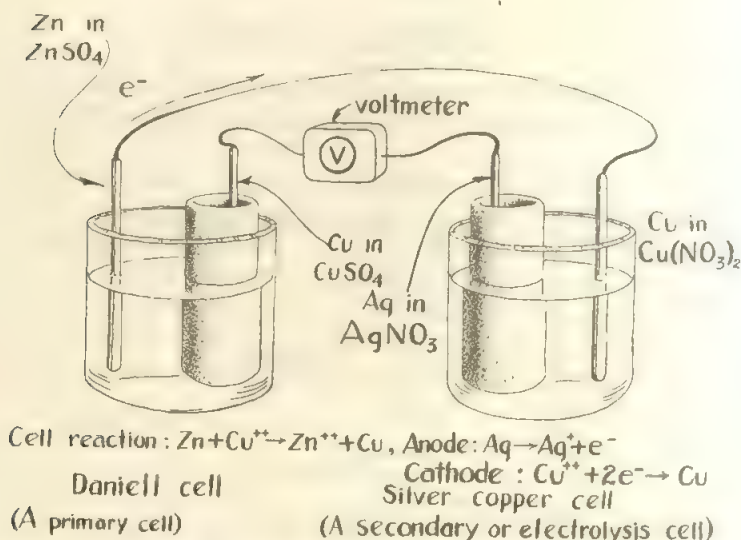 Zn in
ZnSO₄
e⁻
voltmeter
V
Cu in
CuSO₄
Ag in
AgNO₃
Cu in
Cu(NO₃)₂
Cell reaction : Zn+Cu⁺⁺→Zn⁺⁺+Cu, Anode: Ag→Ag⁺+e⁻
Cathode : Cu⁺⁺+2e⁻→ Cu
Daniell cell
Silver copper cell
(A primary cell)
(A secondary or electrolysis cell)